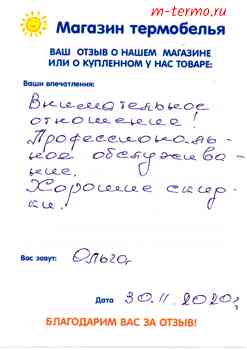 m-termo.ru
Магазин термобелья
ВАШ ОТЗЫВ О НАШЕМ МАГАЗИНЕ
ИЛИ О КУПЛЕННОМ У НАС ТОВАРЕ:
Ваши впечатления:
Внимательное
отношение!
Профессиональ-
ное обслужива-
ние.
Хорошие скид-
ки.
Вас зовут: Ольга
Дата 30.11.2020г
БЛАГОДАРИМ ВАС ЗА ОТЗЫВ!